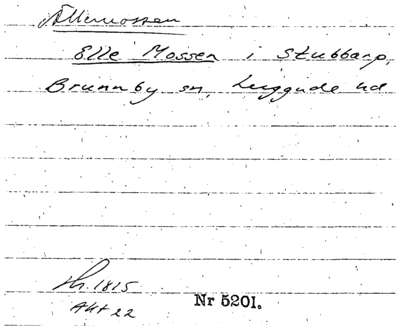 Ällemossen
Elle Mossen i Stubbarp,
Brunnby sn, Luggude hd
1815
Akt 22
Nr 5201.